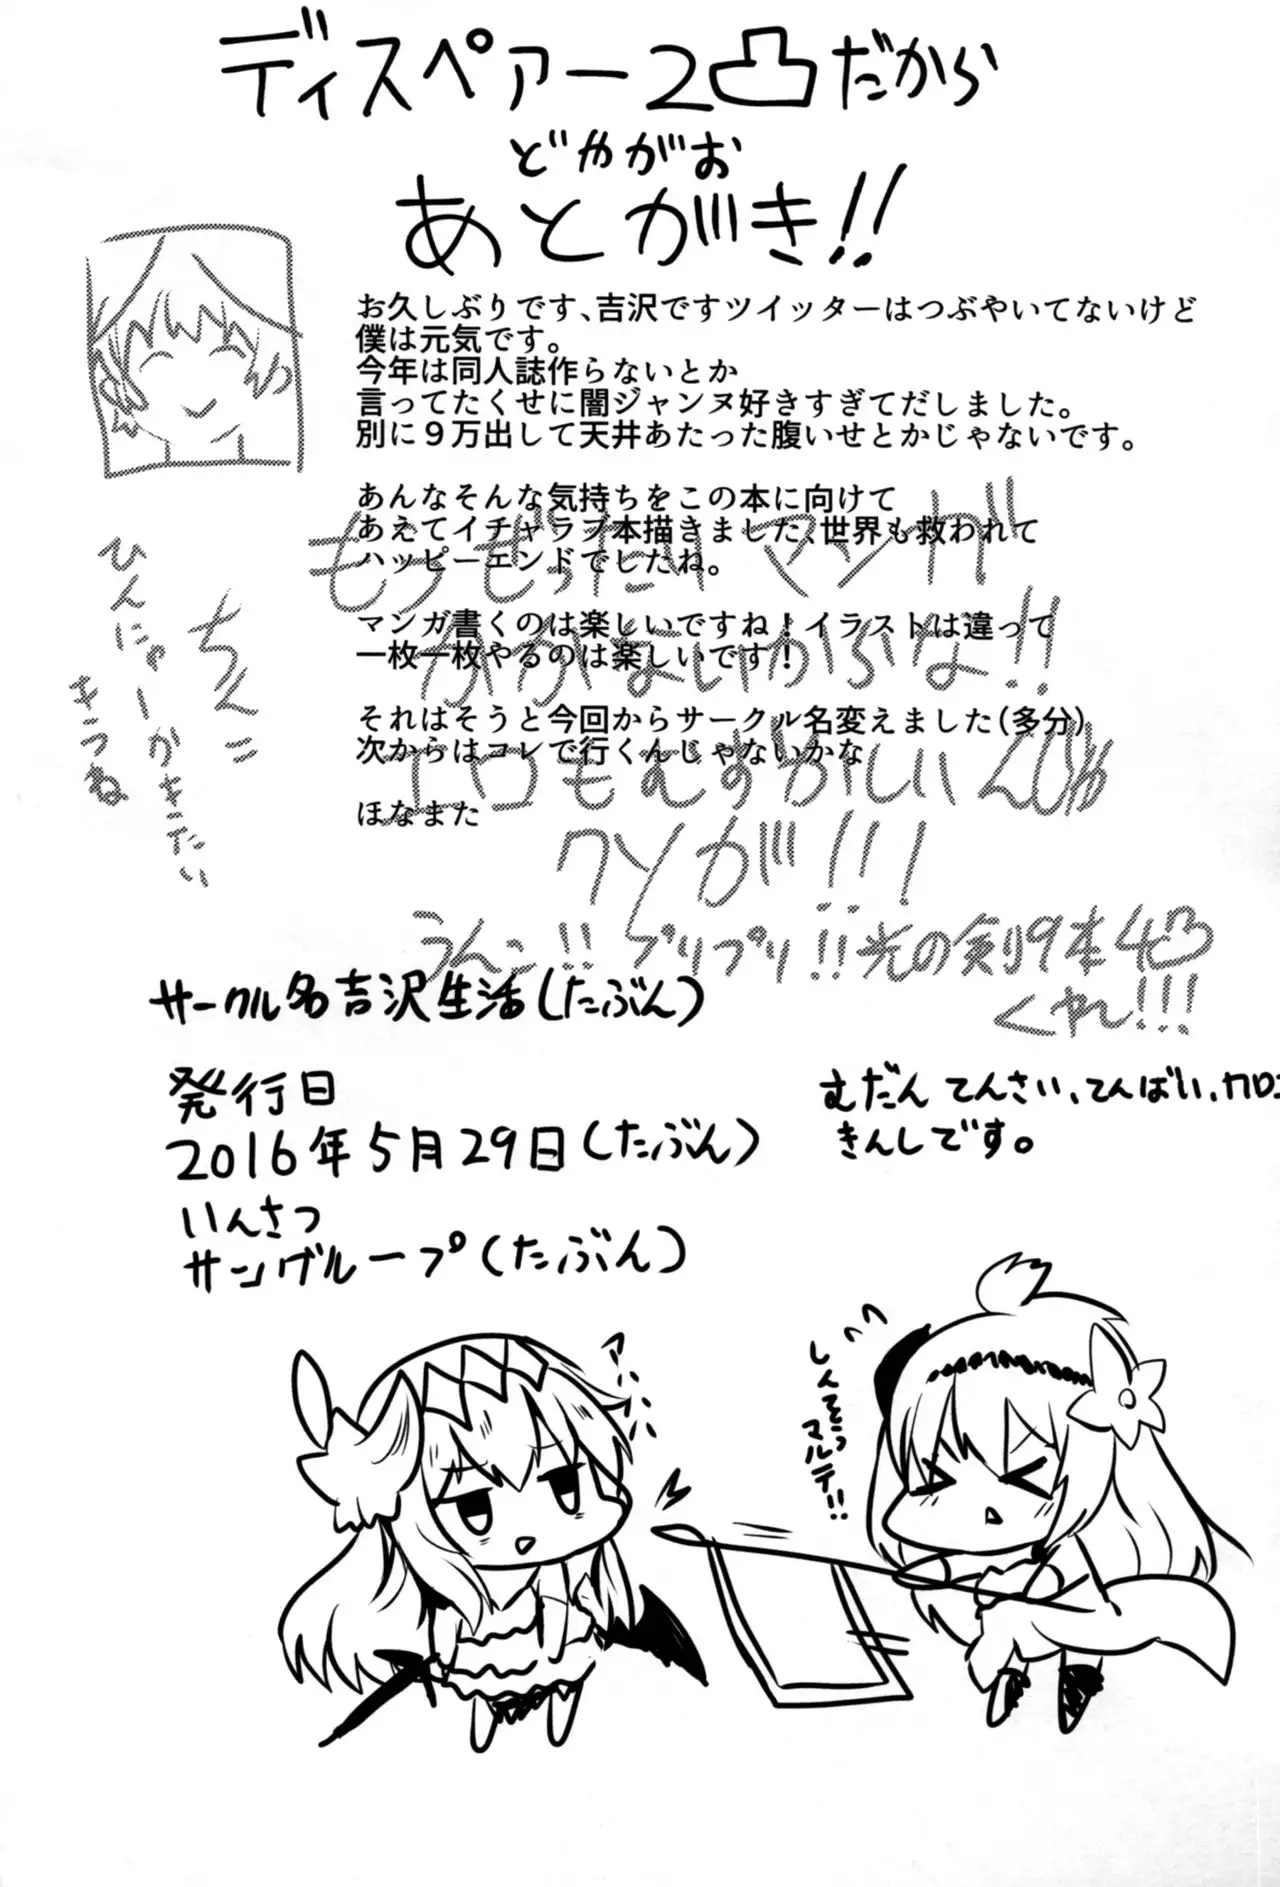 ディスペアー2凸だから
どやがお
あとがき!!
お久しぶりです、吉沢ですツイッターはつぶやいてないけど
僕は元気です。
今年は同人誌作らないとか
言ってたくせに闇ジャンヌ好きすぎてだしました。
別に９万出して天井あたった腹いせとかじゃないです。
あんなそんな気持ちをこの本に向けて
あえてイチャラブ本描きました、世界も救われて
ハッピーエンドでしたね。
マンガ書くのは楽しいですね！イラストは違って
一枚一枚やるのは楽しいです！
それはそうと今回からサークル名変えました(多分)
次からはコレで行くんじゃないかな
ほなまた
もうぜったいマンガ
かかないからな!!
エロもむずかしいんじゃ
クソが!!!
うんこ!!ブリブリ!!光の剣9本4凸
くれ!!!
ちんこ
ひんにゅーかきたい
きつね
サークル名吉沢生活(たぶん)
発行日
2016年5月29日(たぶん)
いんさつ
サングループ(たぶん)
むだんてんさい、てんばい、カロ
きんしです。
アハハ
しんぞうマルテ!!